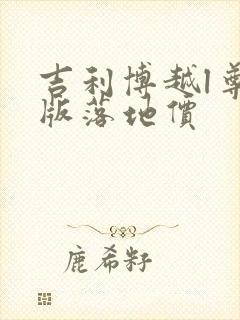 吉利博越l尊
版落地價
鹿希籽